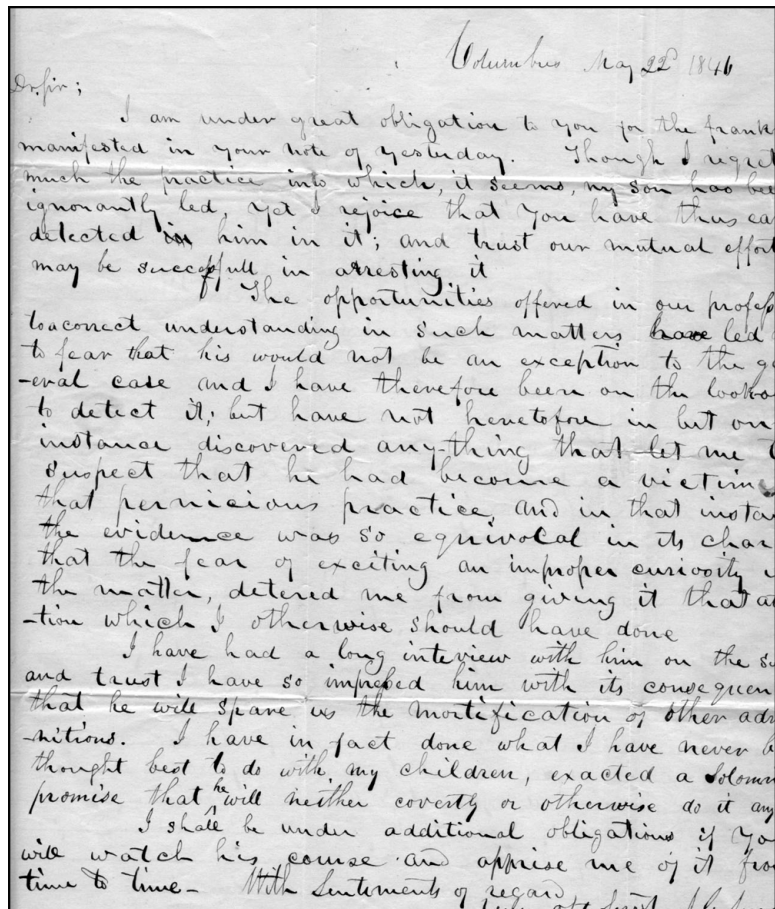 Columbus May 22d 1846
Dr. Sir;
I am under great obligation to you for the frank
manifested in your note of yesterday. Though I regret
much the practice into which, it seems, my son has bee
ignorantly led, yet I rejoice that you have thus ea
detected in him in it; and trust our mutual effort
may be successfull in arresting it
The opportunities offered in our profess
to a correct understanding in such matters have led
to fear that his would not be an exception to the ge
-eral case and I have therefore been on the looko
to detect it; but have not heretofore in but on
instance discovered any-thing that let me t
suspect that he had become a victim
that pernicious practice, and in that instan
the evidence was so equivolcal in its char
that the fear of exciting an improper curiosity i
the matter, detered me from giving it that at
-tion which I otherwise should have done
I have had a long interview with him on the su
and trust I have so impressed him with its consequen
that he will spare us the mortification of other adm
-nitions. I have in fact done what I have never b
thought best to do with my children, exacted a Solomn
promise that he will neither covertly or otherwise do it any
I shall be under additional obligations if you
will watch his course and apprise me of it from
time to time - With Sentiments of regard